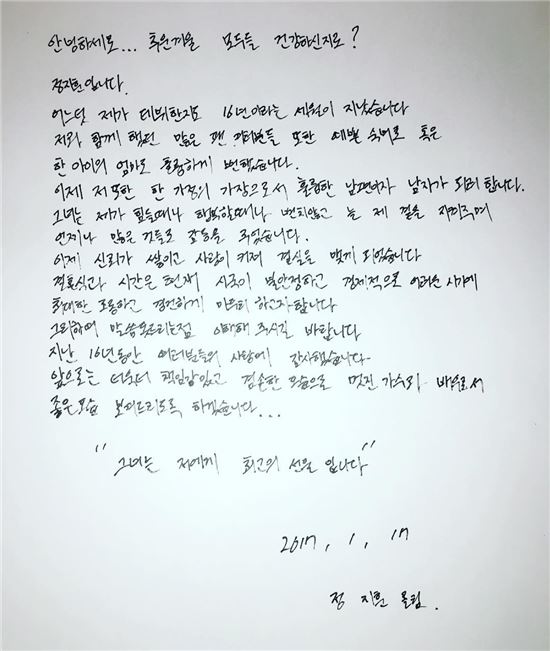 안녕하세요... 추운겨울 모두들 건강하신지요?
정지훈 입니다.
어느덧 제가 데뷔한지도 16년이라는 세월이 지났습니다
저와 함께 했던 많은 팬 여러분들 또한 예쁜 숙녀로 혹은
한 아이의 엄마로 훌륭하게 변했습니다.
이제 저 또한 한 가정의 가장으로서 훌륭한 남편이자 남자가 되려 합니다.
그녀는 제가 힘들때나 행복할때나 변치않고 늘 제 곁을 지켜주며
언제나 많은 것들로 감동을 주었습니다.
이제 신뢰가 쌓이고 사랑이 커져 결실을 맺게 되었습니다
결혼식과 시간은 현재 시국이 불안정하고 경제적으로 어려운 시기에
최대한 조용하고 경건하게 마무리 하고자 합니다
그리하여 말씀못드리는점 이해해 주시길 바랍니다
지난 16년동안 여러분들의 사랑에 감사했습니다
앞으로는 더욱더 책임감있고 겸손한 모습으로 멋진 가수와 배우로서
좋은모습 보여드리도록 하겠습니다...
"그녀는 저에게 최고의 선물 입니다"
2017, 1, 17
정 지훈 올림.